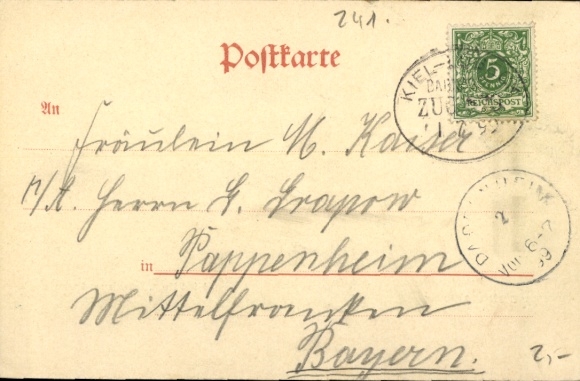 241.
Postkarte
5
REICHSPOST
KIEL-
BAHN
ZUG
1 7 99
An
Fräulein M. Kaiser
p/A. Herrn G. Grapow
in Pappenheim
PAPPENHEIM
2
Vor 6-7
99
Mittelfranken
Bayern.
2,-